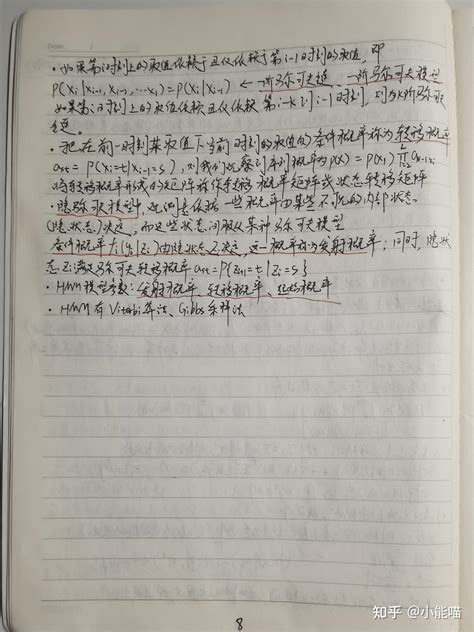 Date
· 如果第i时刻上的取值依赖于且仅依赖于第i-1时刻的取值, 即
P(xi|xi-1, xi-2, …x1) = P(xi|xi-1) ← 一阶马尔可夫链、一阶马尔可夫模型
如果第i时刻上的取值依赖且仅依赖第i-k到i-1时刻, 则为k阶马尔可夫
链
· 把在前一时刻某取值下当前时刻的取值的条件概率称为转移概率
ast = P(xi=t|xi-1=s), 则我们观察到序列概率为P(x) = P(x1)
将转移概率形成的矩阵称作转移概率矩阵或状态转移矩阵
· 隐马尔可夫模型, 观测是依据一些概率由某些不可见的内部状态
(隐状态)决定, 而这些状态间服从某种马尔可夫模型
条件概率 由隐状态Zi决定, 这一概率称为发射概率; 同时, 隐状
态Zi满足马尔可夫转移概率ast = P{Zi+1=t|Zi=s}
· HMM模型参数: 发射概率、转移概率、起始概率
· HMM有Viterbi算法、Gibbs采样法
8
知乎 @小能喵